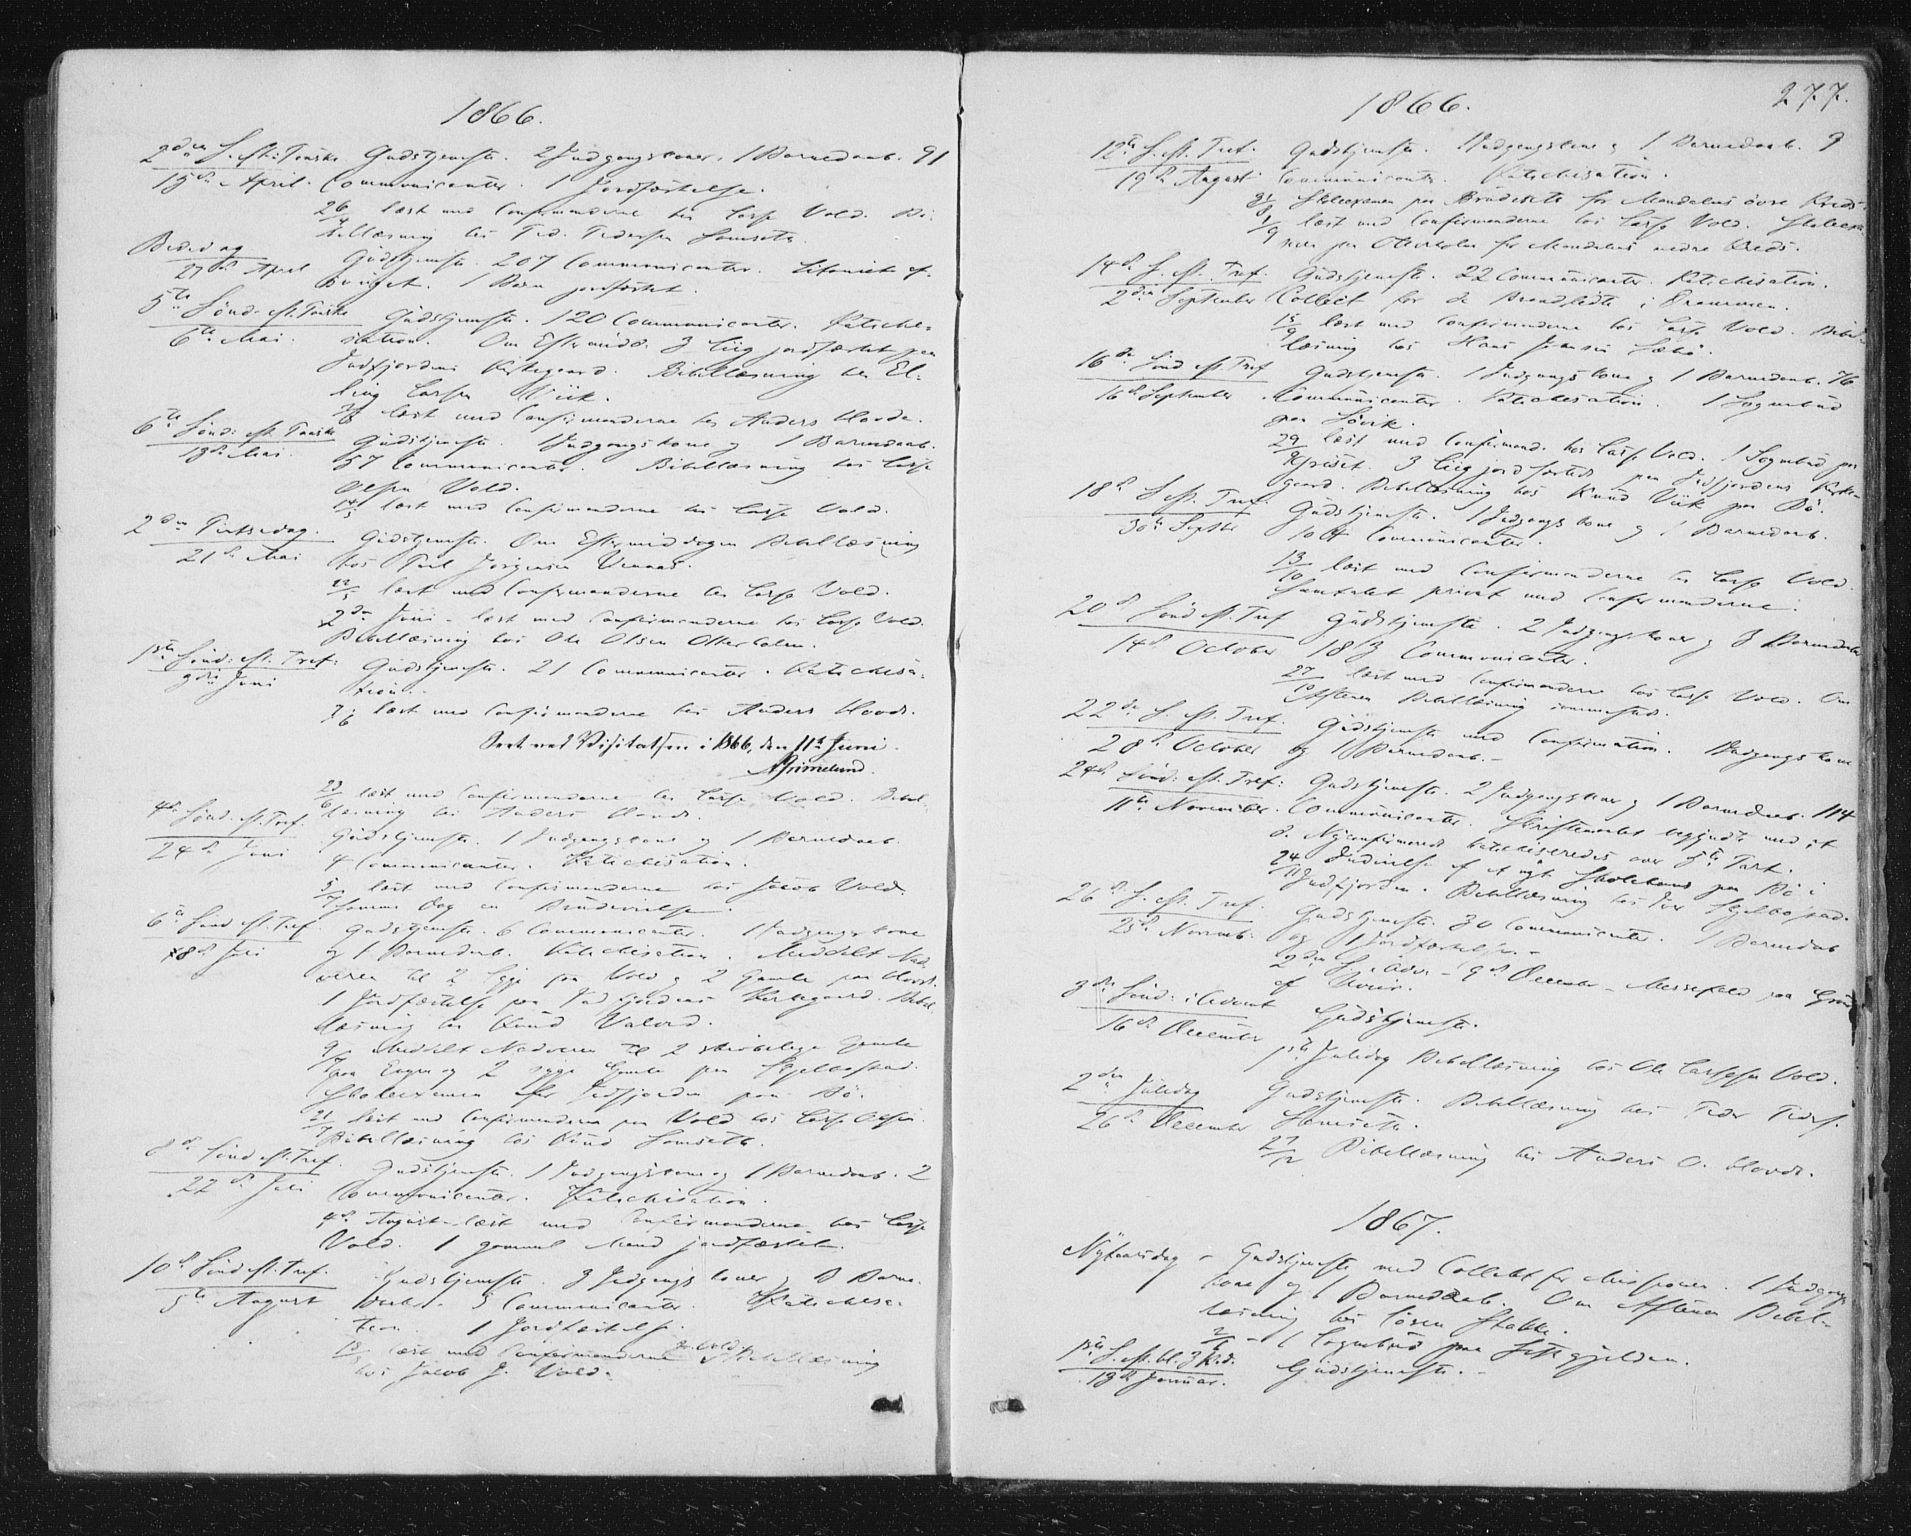 1866.
2den S. eft. Paaske Gudstjeneste. 2 Indgangskoner. 1 Barnedaab. 91
15de April. Communicanter. 1 Jordfæstelse.
26/4 læst med Confirmanderne hos Lasse Vold. Bi-
bellæsning hos Ped. Pedersen
Bededag Gudstjeneste. 207 Communicanter. Litaniet af-
27de April 1 Barn jordfæstet.
5te Sønd. eft. Paaske Gudstjeneste. 120 Communicanter. Katiche-
6te Mai. sation. Om Eftermidd. 3 Liig jordfæstet paa
Indfjordens Kirkegaard. Bibellæsning hos El-
ling Larsen Viik.
læst med Confirmanderne hos Anders Hovde.
6te Sønd. eft. Paaske Gudstjeneste. 1 Indgangskone og 1 Barnedaab.
13de Mai. 57 Communicanter. Bibellæsning hos Lasse
Olsen Vold.
14/5 læst med Confirmanderne hos Lasse Vold.
2den Pintsedag. Gudstjeneste. Om Eftermiddagen Bibellæsning
21de Mai hos Jørgensen
22/5 læst med Confirmanderne hos Lasse Vold.
2den Juni - læst med Confirmanderne hos Lasse Vold.
Bibellæsning hos Ole Olsen Otterholm.
1ste Sønd. eft. Tref. Gudstjeneste. 21 Communicanter. Katichisa-
Juni tion.
7/6 læst med Confirmanderne hos Anders Hovde.
Seet ved Visitatsen i 1866, den 11te Juni.
Grimelund.
23/6 læst med Confirmanderne hos Lasse Vold. Bibel-
læsning hos Anders Hovde.
4de Sønd. eft. Tref. Gudstjeneste. 1 Indgangskone og 1 Barnedaab.
24de Juni 4 Communicanter. Katichisation.
5/7 læst med Confirmanderne hos Jacob Vold.
Samme Dag en Brudevielse.
6te Sønd. eft. Tref. Gudstjeneste. 6 Communicanter. 1 Indgangskone
8de Juli og 1 Barnedaab. Katichisation. Meddelt Nad-
veren til 2 Syge paa Vold og 2 Gamle paa Hovde.
1 Jordfæstelse paa Indfjordens Kirkegaard. Bibel-
læsning hos Knud
9/7 Meddelt Nadveren til 2 Gamle
paa og 2 syge Gamle paa Skjelbostad.
Skoleexamen for Indfjorden paa Bø.
21/7 læst med Confirmanderne paa Vold hos Lasse Olsen.
Bibellæsning hos Knud
8de Sønd. eft. Tref. Gudstjeneste. 1 Indgangskone og 1 Barnedaab. 2
22de Juli Communicanter. Katichisation.
4de August læst med Confirmanderne hos Lasse
Vold. 1 gammel Mand jordfæstet.
10de Sønd. eft. Tref. Gudstjeneste. 3 Indgangskoner og 3 Barne-
5te August daab. 3 Communicanter. Katichisa-
tion. 1 Jordfæstelse.
læst med Confirmanderne Bibellæsning
hos Jacob J. Vold.
1866. 277.
12te S. eft. Tref. Gudstjeneste. 1 Indgangskone og 1 Barnedaab. 9
19de August Communicanter. Katichisation.
31/8 Skoleexamen paa for Mandalens øvre Kreds.
1/9 læst med Confirmanderne hos Lasse Vold. Skoleexa-
men paa Otterholm for Mandalens nedre Kreds.
14de S. eft. Tref. Gudstjeneste. 22 Communicanter. Katichisation.
2den September Collect for de Brandlidte i Drammen.
15/9 læst med Confirmanderne hos Lasse Vold. Bibel-
læsning hos Hans Johnsen
16de Sønd. eft. Tref. Gudstjeneste. 1 Indgangskone og 1 Barnedaab. 76
16de September Communicanter. Katichisation. 1 Sognebud
paa
29/9 læst med Confirmand. hos Lasse Vold. 1 Sognebud paa
3 Liig jordfæstede paa Indfjordens Kirke-
gaard. Bibellæsning hos Knud Viik paa Bø.
18de S. eft. Tref. Gudstjeneste. 1 Indgangskone og 1 Barnedaab.
30te Septbr 104 Communicanter.
13/10 læst med Confirmanderne hos Lasse Vold.
Samtalet privat med Confirmanderne.
20de Sønd. eft. Tref. Gudstjeneste. 2 Indgangskoner og 3 Barnedaab
14de October 183 Communicanter.
27/10 læst med Confirmanderne hos Lasse Vold. Om
Aftenen Bibellæsning
22de S. eft. Tref. Gudstjeneste med Confirmation. 1 Indgangskone
28de October og 1 Barnedaab.
24de Sønd. eft. Tref. Gudstjeneste. 2 Indgangskoner og 1 Barnedaab. 114
11te November. Communicanter. Skriftemaalet begyndte med at
de Nyconfirmered katichiseredes over 5te Part.
24/11 Indvielse af et nyt Skolehuus paa Bø i
Indfjorden. Bibellæsning hos Iver Skjelbostad.
26de S. eft. Tref. Gudstjeneste. 30 Communicanter. 1 Barnedaab
25de Novemb. og 1 Jordfæstelse.
2den S. i Adv. - 9de December - Messefald paa Grund
af Uveir.
3die Sønd. i Advent Gudstjeneste.
16de December
1ste Juledag Bibellæsning hos Ole Larssen Vold.
2den Juledag Gudstjeneste. Bibellæsning hos Peder Peders.
26de December
27/12 Bibellæsning hos Anders O. Hovde.
1867.
Nytaarsdag - Gudstjeneste med Collekt for Missionen. 1 Indgangs-
kone og 1 Barnedaab. Om Aftenen Bibel-
læsning hos Stokke.
1 Sognebud paa
1ste S. eft. hl. 3 K. d. Gudstjeneste.
13de Januar.